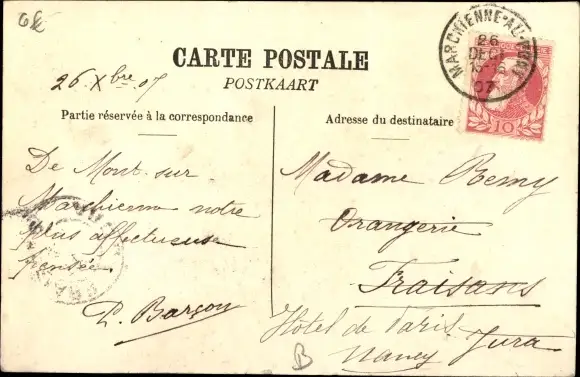 CARTE POSTALE
POSTKAART
26 Xbre 07
Partie réservée à la correspondance
Adresse du destinataire
MARCHIENNE-AU-PONT
26
DECE
07
10
De Mont-sur
Marchienne notre
plus affectueuse
pensée
P. Barçon
Madame Remy
Orangerie
Fraisans
Jura
Hôtel de Paris
Nancy
B